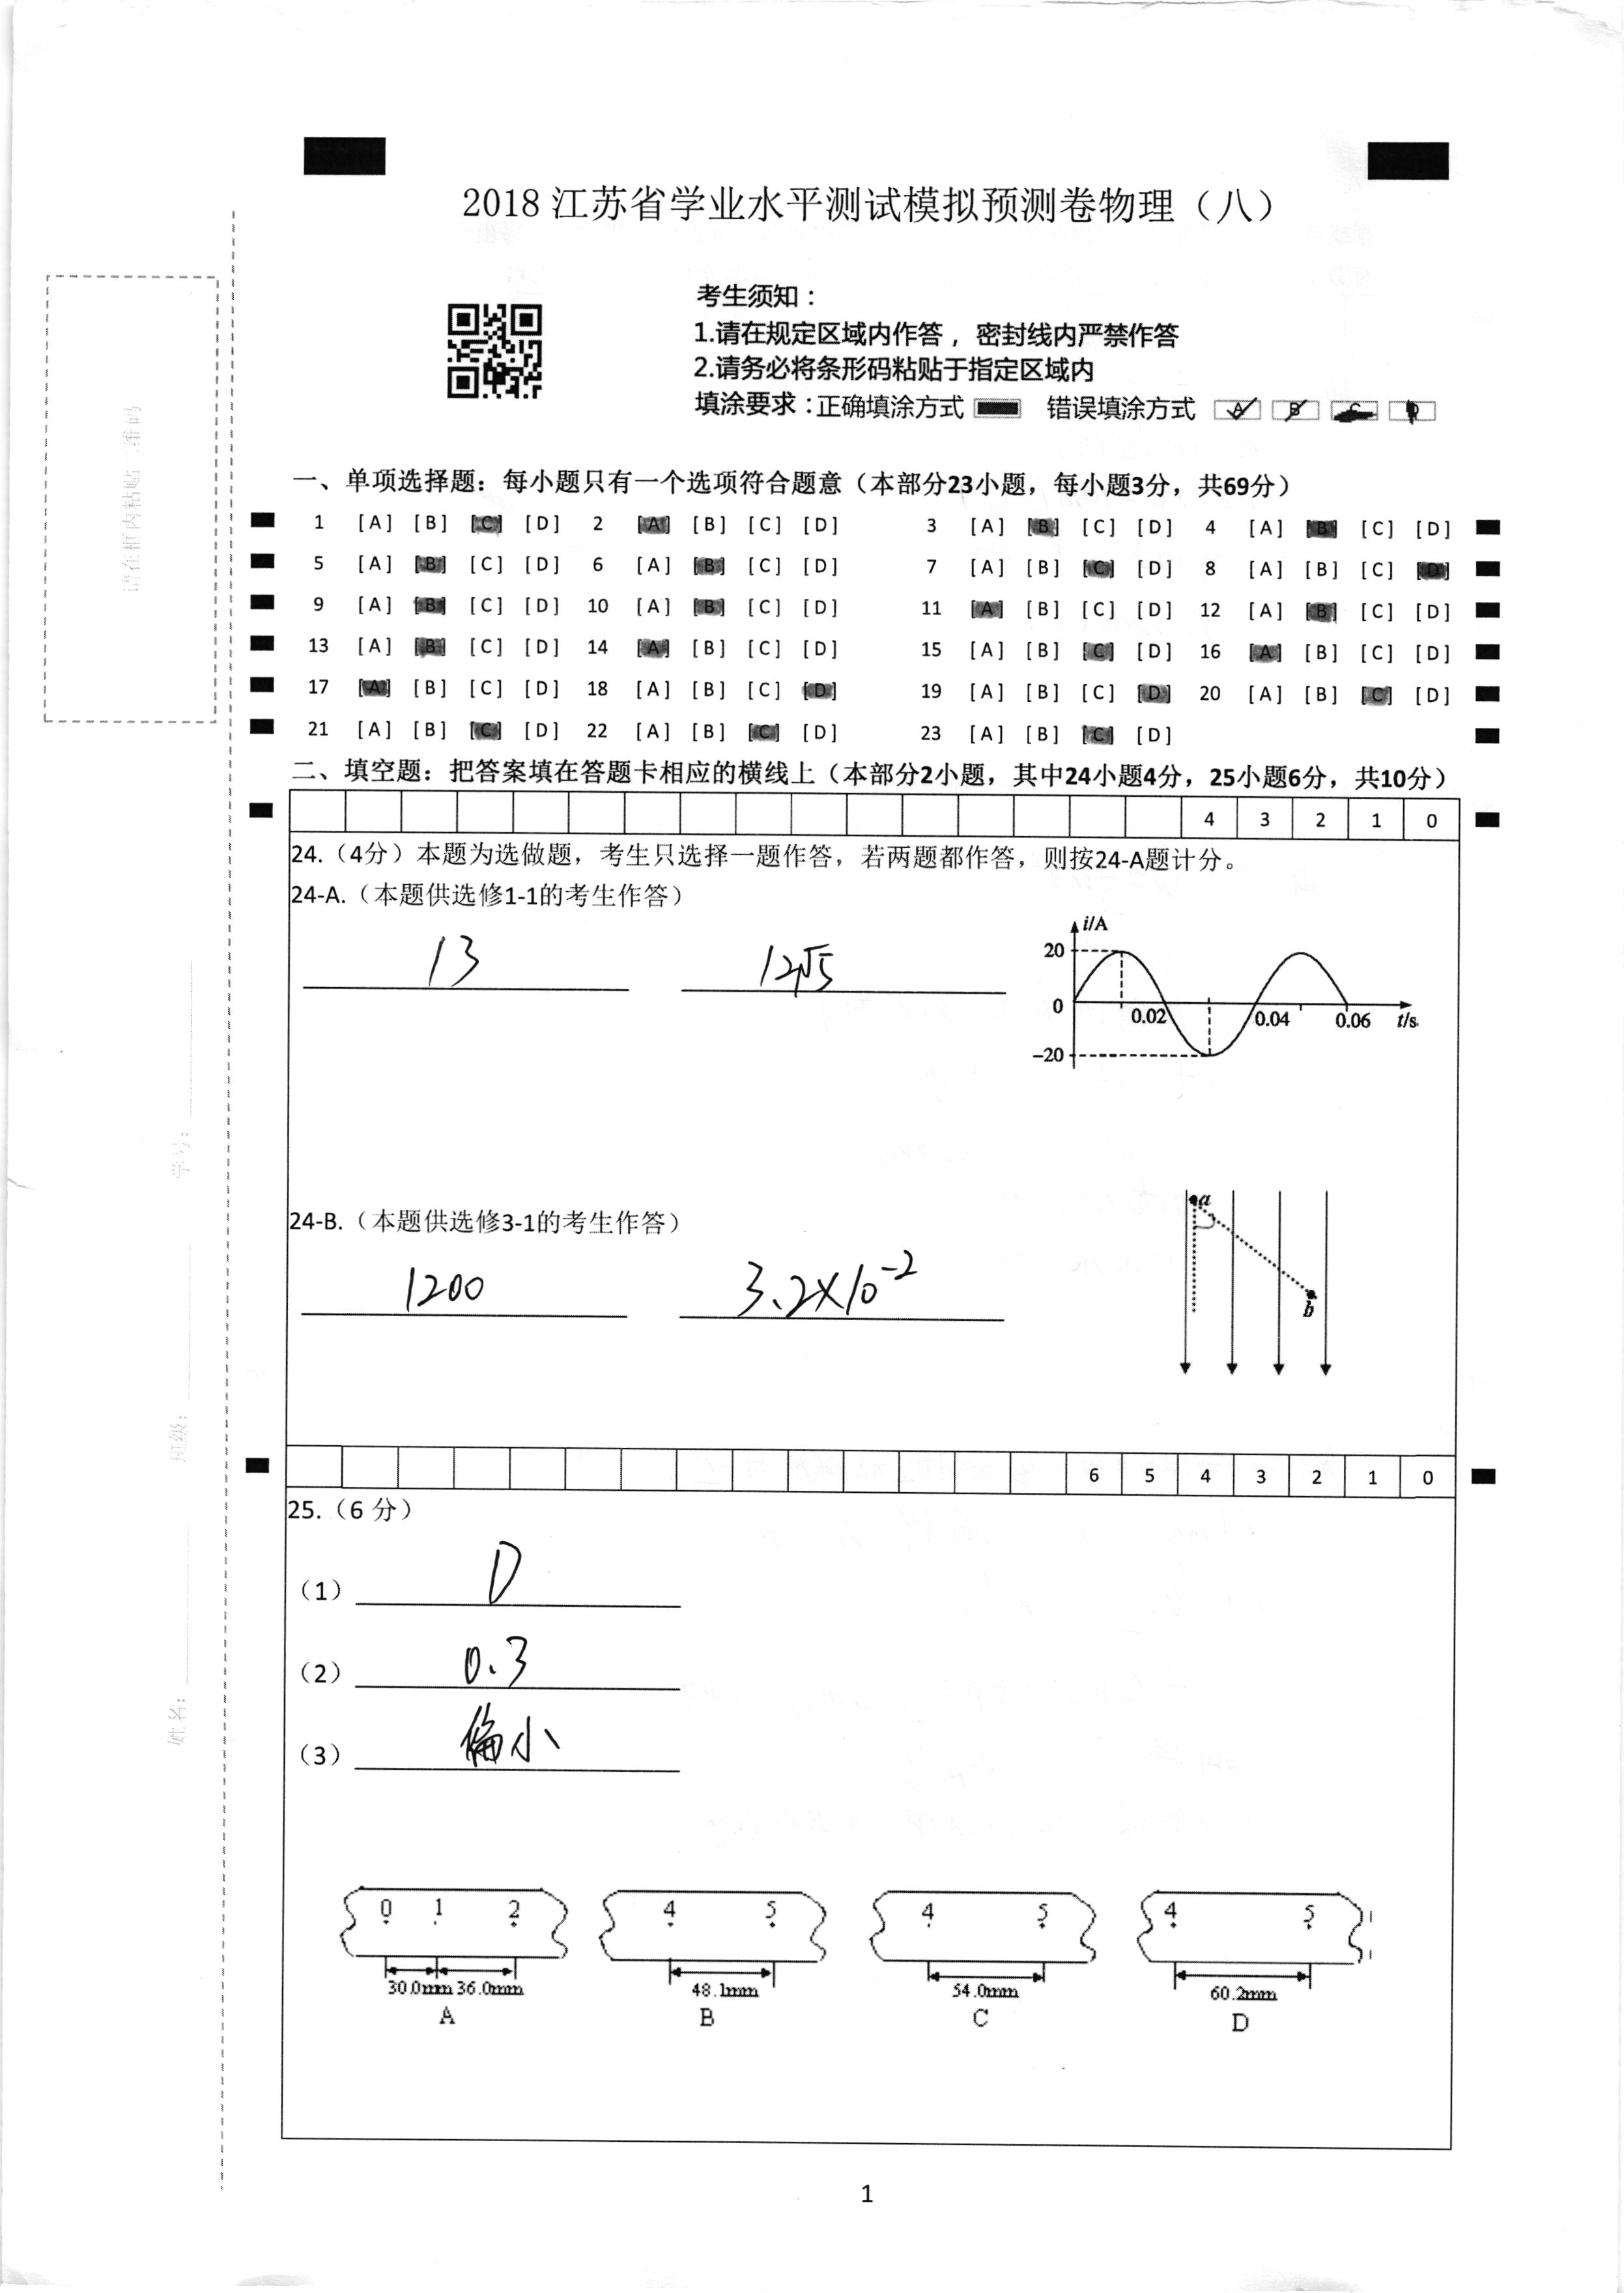 2018江苏省学业水平测试模拟预测卷物理（八）
考生须知：
1.请在规定区域内作答，密封线内严禁作答
2.请务必将条形码粘贴于指定区域内
填涂要求：正确填涂方式 错误填涂方式 A B C D
请在框内粘贴二维码
一、单项选择题：每小题只有一个选项符合题意（本部分23小题，每小题3分，共69分）
1 [A] [B] [C] [D] 2 [A] [B] [C] [D] 3 [A] [B] [C] [D] 4 [A] [B] [C] [D]
5 [A] [B] [C] [D] 6 [A] [B] [C] [D] 7 [A] [B] [C] [D] 8 [A] [B] [C] [D]
9 [A] [B] [C] [D] 10 [A] [B] [C] [D] 11 [A] [B] [C] [D] 12 [A] [B] [C] [D]
13 [A] [B] [C] [D] 14 [A] [B] [C] [D] 15 [A] [B] [C] [D] 16 [A] [B] [C] [D]
17 [A] [B] [C] [D] 18 [A] [B] [C] [D] 19 [A] [B] [C] [D] 20 [A] [B] [C] [D]
21 [A] [B] [C] [D] 22 [A] [B] [C] [D] 23 [A] [B] [C] [D]
二、填空题：把答案填在答题卡相应的横线上（本部分2小题，其中24小题4分，25小题6分，共10分）
4 3 2 1 0
24.（4分）本题为选做题，考生只选择一题作答，若两题都作答，则按24-A题计分。
24-A.（本题供选修1-1的考生作答）
13 12√5
i/A
20
0 0.02 0.04 0.06 t/s
-20
学号：
24-B.（本题供选修3-1的考生作答）
1200 3.2×10⁻²
a
b
班级：
6 5 4 3 2 1 0
25.（6 分）
（1） D
（2） 0.3
（3） 偏小
姓名：
0 1 2 4 5 4 5 4 5
30.0mm 36.0mm 48.1mm 54.0mm 60.2mm
A B C D
1